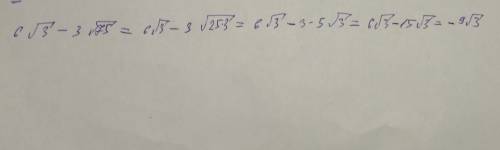 6√3 - 3√75 = 6√3 - 3√25·3 = 6√3 - 3·5√3 = 6√3 - 15√3 = -9√3